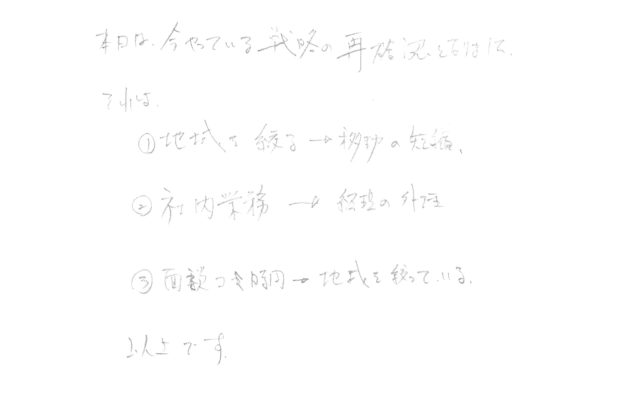 本日は、今やっている戦略の再確認と
それは、
①地域を絞る→移動の短縮、
②社内業務→経理の外注
③面談 時間→地域を絞っている。
以上です。